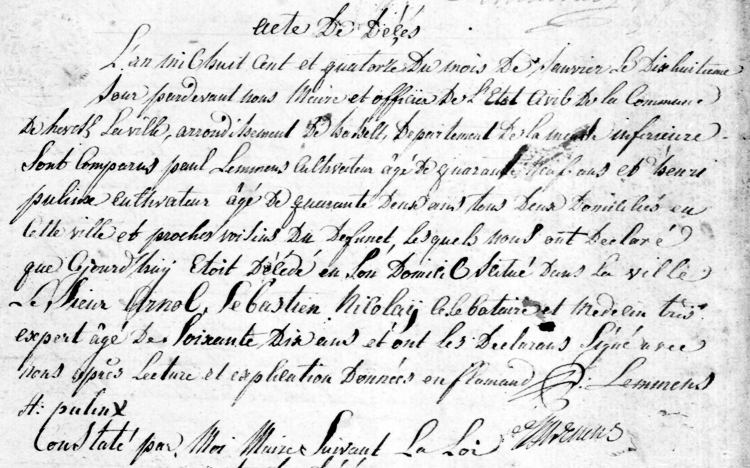 acte De Décés
L'an mil huit Cent et quatorze Du mois De Janvier Le Dix huitieme
Jour pardevant nous Maire et officier De l'Etat Civil De La Commune
De herck La ville, arrondissement De hasselt, Departement De la meuse inferieure
Sont Comparus paul Lemmens Cultivateur âgé De quarante neuf ans et henri
pulinx Cultivateur âgé De quarante Deux ans tous Deux Domiciliés en
Cette ville et proches voisins Du Defunct, Lesquels nous ont Declaré
que Cejourd'huij Etoit Décédé en Son Domicil Situé Dans La ville
Le Sieur Arnol, Sebastien Nicolaij Celebataire et Medecin très
expert âgé De Soixante Dix ans et ont les Declarans Signé avec
nous après Lecture et explication Données en flamand Lemmens
H: pulinx
Constaté par Moi Maire Suivant La Loi